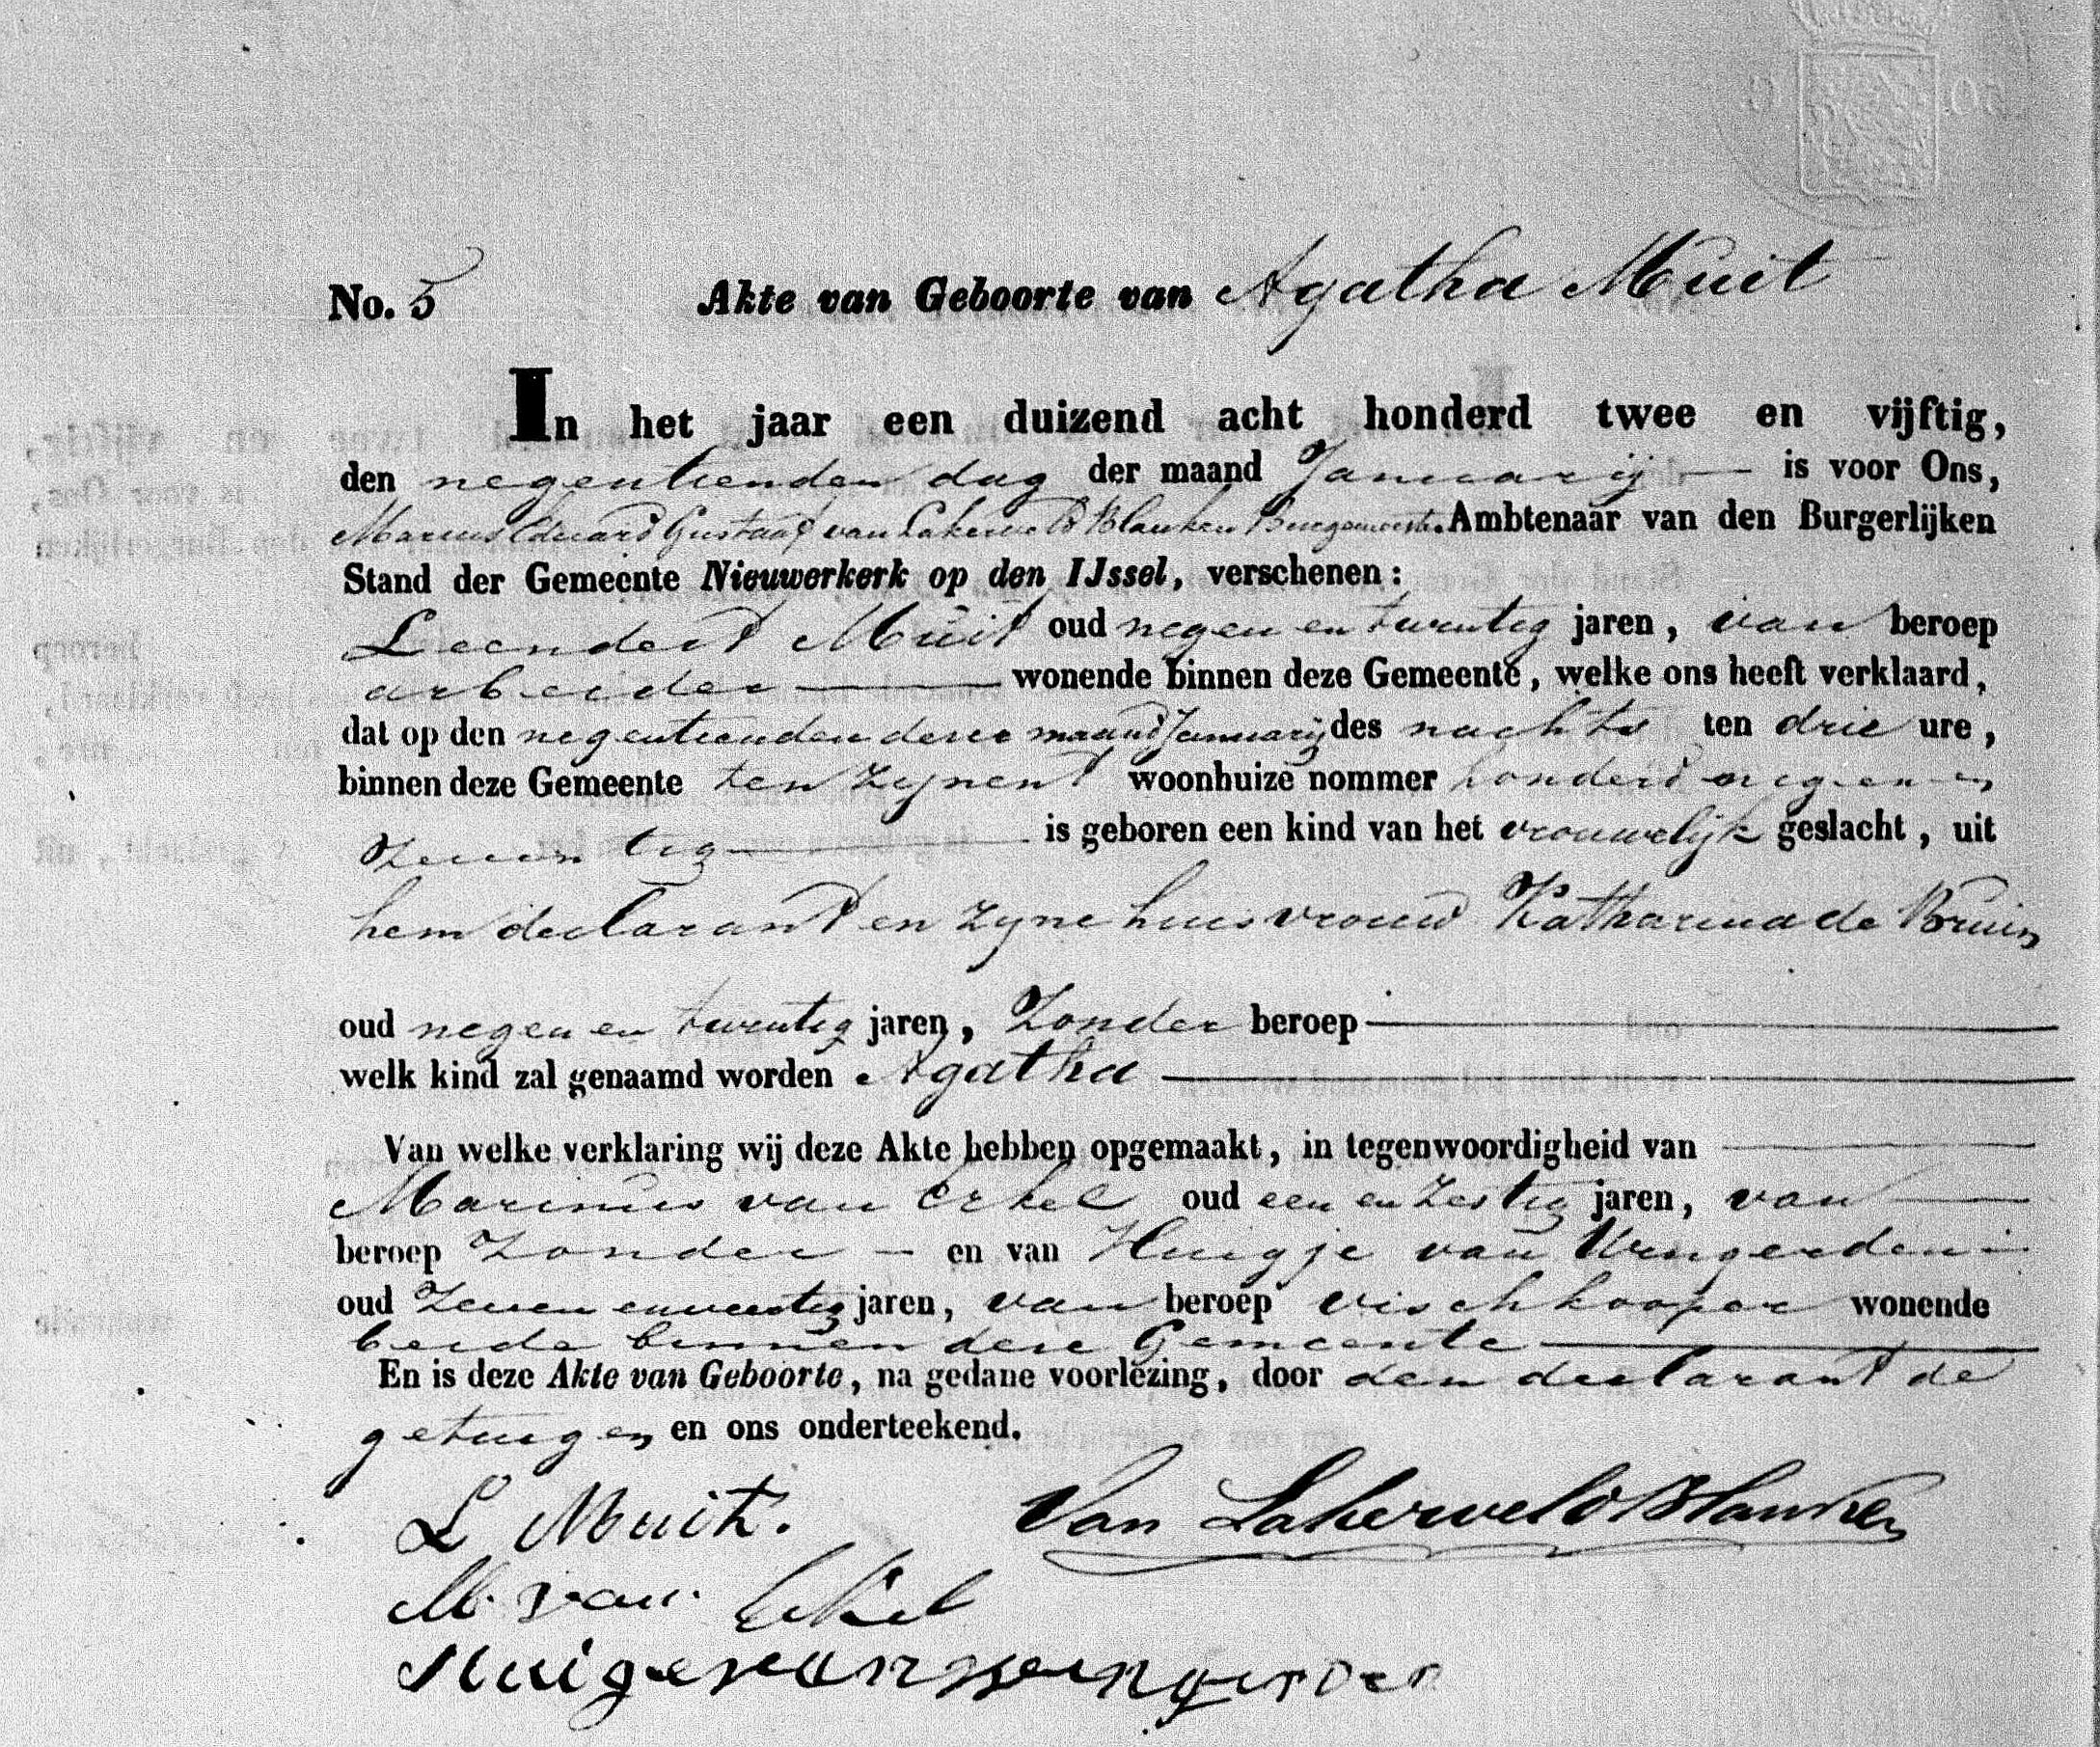 No. 5 Akte van Geboorte van Agatha Muit
In het jaar een duizend acht honderd twee en vijftig,
den negentienden dag der maand Januarij is voor Ons,
Marius Eduard Gustaaf van Lakerveld Blanken Burgemeester Ambtenaar van den Burgerlijken
Stand der Gemeente Nieuwerkerk op den IJssel, verschenen:
Leendert Muit oud negen en twintig jaren, van beroep
arbeider wonende binnen deze Gemeente, welke ons heeft verklaard,
dat op den negentienden dezer maand Januarij des nachts ten drie ure,
binnen deze Gemeente ten zynent woonhuize nommer honderd negen en
zeventig is geboren een kind van het vrouwelijk geslacht, uit
hem declarant en zyne huisvrouw Katharina de Bruin
oud negen en twintig jaren, zonder beroep
welk kind zal genaamd worden Agatha
Van welke verklaring wij deze Akte hebben opgemaakt, in tegenwoordigheid van
Marinus van Erkel oud een en zestig jaren, van
beroep zonder en van Huigje van Wingerden
oud zeven en veertig jaren, van beroep vischkooper wonende
beide binnen deze Gemeente
En is deze Akte van Geboorte, na gedane voorlezing, door den declarant de
getuigen en ons onderteekend.
L Muit. Van Lakerveld Blanken
M. van Erkel
Huige van Wengerden